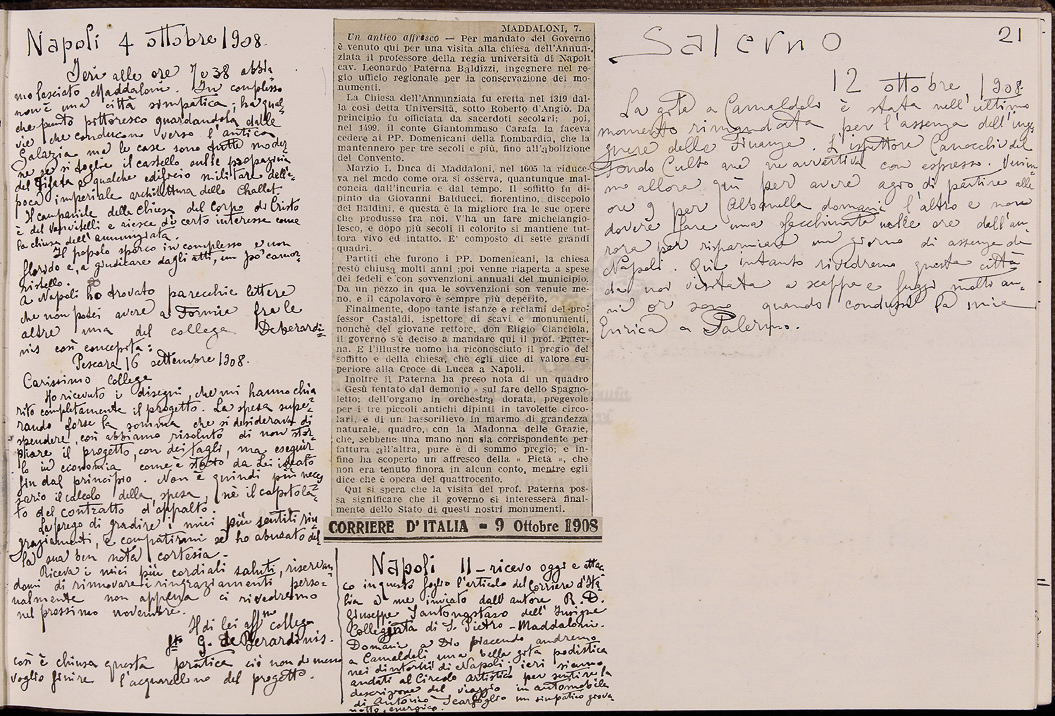 Napoli 4 ottobre 1908.
Ieri alle ore 7 e 38 abbia-
mo lasciato Maddaloni. In complesso
non è una città simpatica; ha qual
che punto pittoresco guardandola dalle
vie che conducono verso l'antica
Galazia ma le case sono tutte moder
ne se si toglie il castello sulle propaggini
del Tifata e qualche edificio militare dell'e-
poca imperiale architettura dello Challet.
Il campanile della chiesa del Corpo di Cristo
è del Vanvitelli e riesce di certo interesse come
la chiesa dell'annunziata.
Il popolo sporco in complesso e non
florido e, a giudicare dagli atti, un po' camor
ristello.
A Napoli ho trovato parecchie lettere
che non potei avere a Formia fra le
altre una del collega Deberardi-
nis così concepita:
Pescara 16 settembre 1908.
Carissimo Collega
Ho ricevuto i disegni che mi hanno chia
rito completamente il progetto. La spesa supe-
rando forse la somma che si desiderava di
spendere, così abbiamo risoluto di non
il progetto, con dei tagli, ma eseguir
lo in economia come è stato da Lei ideato
fin dal principio. Non è quindi più neces
sario il calcolo della spesa, nè il capitola-
to del contratto d'appalto.
La prego di gradire i miei più sentiti rin
graziamenti, e compatirmi se ho abusato del
la sua ben nota cortesia.
Riceva i miei più cordiali saluti, riservan
domi di rinnovare i ringraziamenti perso-
nalmente non appena ci rivedremo
nel prossimo novembre.
Il di lei aff.mo collega
G. de Berardinis.
così è chiusa questa pratica ciò non di meno
voglio finire l'acquarellino del progetto.
MADDALONI, 7.
Un antico affresco — Per mandato del Governo
è venuto qui per una visita alla chiesa dell'Annun-
ziata il professore della regia università di Napoli
cav. Leonardo Paterna Baldizzi, ingegnere nel re-
gio ufficio regionale per la conservazione dei mo-
numenti.
La Chiesa dell'Annunziata fu eretta nel 1319 dal-
la così detta Università, sotto Roberto d'Angiò. Da
principio fu officiata da sacerdoti secolari; poi,
nel 1499, il conte Giantommaso Carafa la faceva
cedere ai PP. Domenicani della Lombardia, che la
mantennero per tre secoli e più, fino all'abolizione
del Convento.
Marzio I, Duca di Maddaloni, nel 1665 la riduce-
va nel modo come ora si osserva, quantunque mal-
concia dall'incuria e dal tempo. Il soffitto fu di-
pinto da Giovanni Balducci, fiorentino, discepolo
del Baldini, e questa è la migliore fra le sue opere
che produsse fra noi. V'ha un fare michelangio-
lesco, e dopo più secoli il colorito si mantiene tut-
tora vivo ed intatto. E' composto di sette grandi
quadri.
Partiti che furono i PP. Domenicani, la chiesa
restò chiusa molti anni ;poi venne riaperta a spese
dei fedeli e con sovvenzioni annuali del municipio.
Da un pezzo in qua le sovvenzioni son venute me-
no, e il capolavoro è sempre più deperito.
Finalmente, dopo tante istanze e reclami del pro-
fessor Castaldi, ispettore di scavi e monumenti,
nonchè del giovane rettore, don Eligio Cianciola,
il governo s'è deciso a mandare qui il prof. Pater-
na. E l'illustre uomo ha riconosciuto il pregio del
soffitto e della chiesa, che egli dice di valore su-
periore alla Croce di Lucca a Napoli.
Inoltre il Paterna ha preso nota di un quadro
« Gesù tentato dal demonio » sul fare dello Spagno-
letto; dell'organo in orchestra dorata, pregevole
per i tre piccoli antichi dipinti in tavolette circo-
lari, e di un bassorilievo in marmo di grandezza
naturale, quadro, con la Madonna delle Grazie,
che, sebbene una mano non sia corrispondente per
fattura all'altra, pure è di sommo pregio; e in-
fino ha scoperto un affresco della « Pietà », che
non era tenuto finora in alcun conto, mentre egli
dice che è opera del quattrocento.
Qui si spera che la visita del prof. Paterna pos-
sa significare che il governo si interesserà final-
mente dello Stato di questi nostri monumenti.
CORRIERE D'ITALIA - 9 Ottobre 1908
Napoli 11 - ricevo oggi e attac
co in questo foglio l'articolo del Corriere d'Ita
lia a me inviato dall'autore R. D.
Giuseppe Santonastaso dell'Insigne
Collegiata di S. Pietro - Maddaloni.
Domani a Dio piacendo andremo
a Camaldoli una bella gita podistica
nei dintorni di Napoli. ieri siamo
andati al Circolo Artistico per sentire la
descrizione del viaggio in automobile
di Antonio Scarfoglio un simpatico giova
notto, energico.
Salerno
21
12 ottobre 1908
La gita a Camaldoli è stata nell'ultimo
momento rimandata per l'assenza dell'inge
gnere delle Finanze. L'ispettore Canocchi del
Fondo Culto me ne avvertiva con espresso. Venim
mo allora qui per avere agio di partire alle
ore 9 per Albanella domani l'altro e non
dovere fare una sfacchinata nelle ore dell'au
rora per risparmiare un giorno di assenza da
Napoli. Qui intanto rivedremo questa città
da noi visitata a scappa e fuggi molti an-
ni or sono quando condussi la mia
Enrica a Palermo.